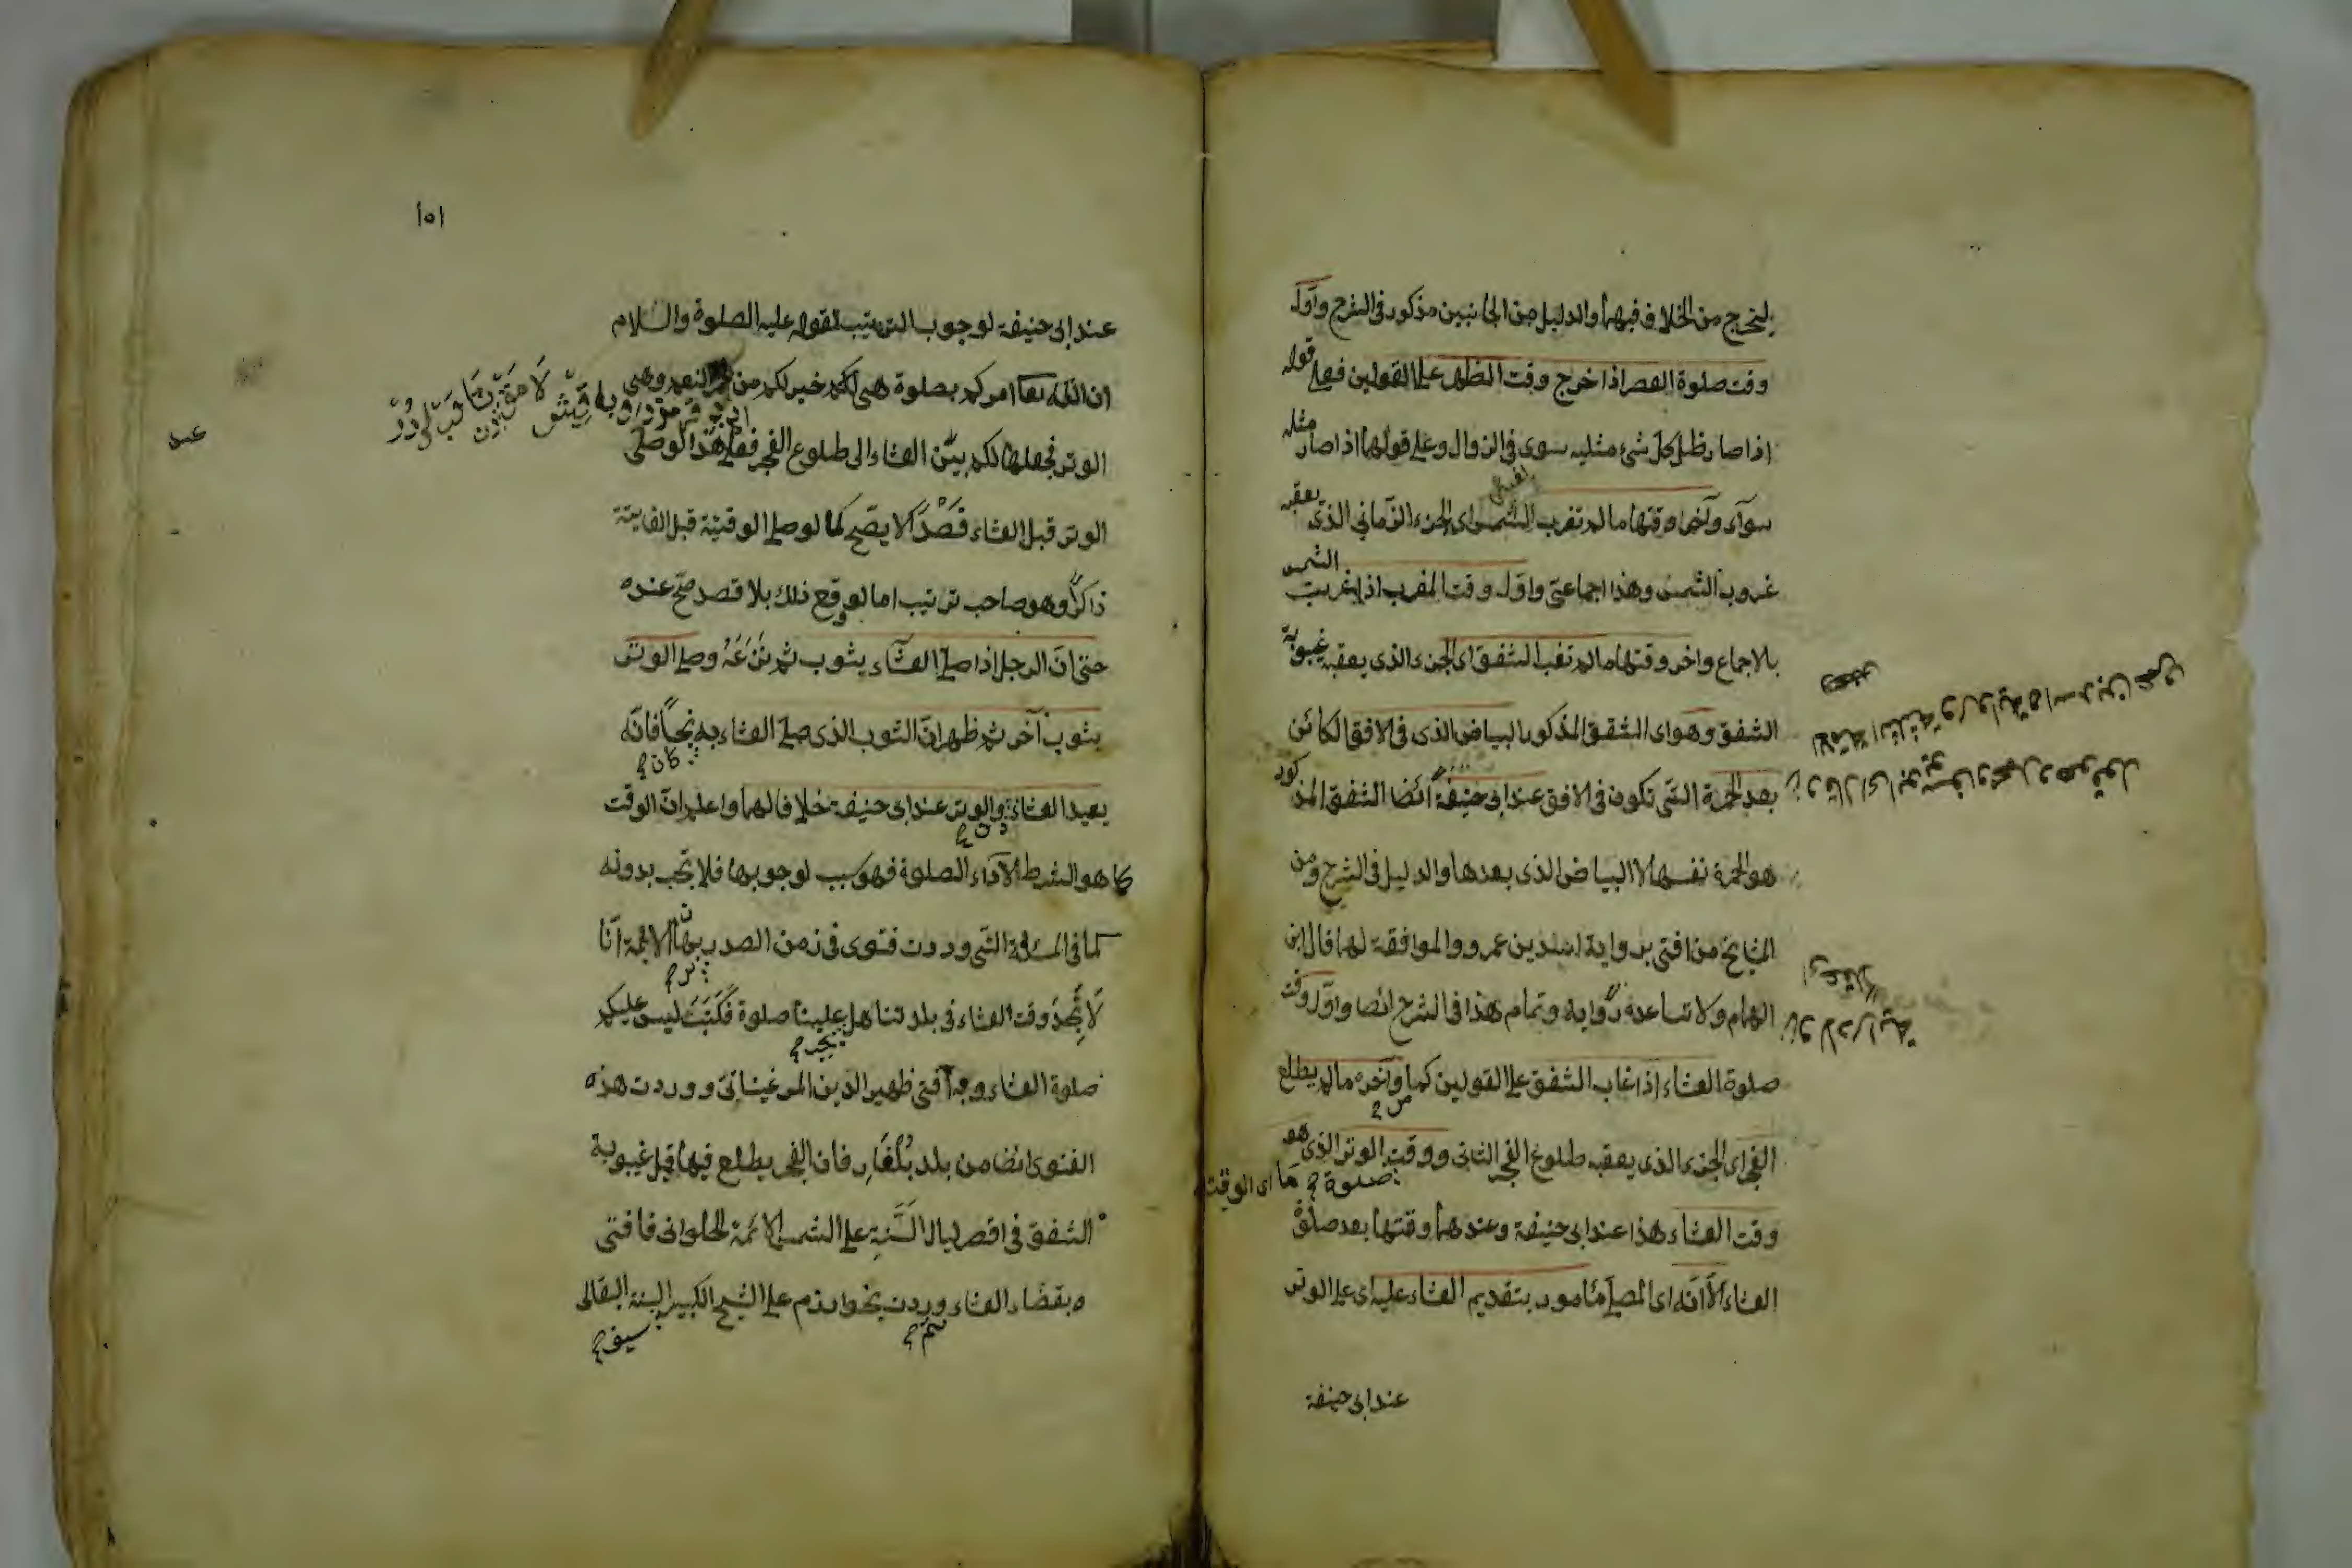 ليخرج من الخلاف فيهما والدليل من الجانبين مذكور فى الشرح واول
وقت صلوة العصر اذا خرج وقت الظهر على القولين فعلى قوله
اذا صار ظل كل شئ مثليه سوى فئ الزوال وعلى قولهما اذا صار مثله
سوآء وآخر وقتها ما لم تغرب الشمس اى الجزء الزمانى الذى يعقبه
غروب الشمس وهذا اجماعى واول وقت المغرب اذا غربت الشمس
بالاجماع واخر وقتها ما لم تغب الشفق اى الجزء الذى يعقبه غيبوبة
الشفق وهو اى الشفق المذكور البياض الذى فى الافق الكائن
بعد الحمرة التى تكون فى الافق عند ابى حنيفة ايضا الشفق المذكور
هو الحمرة نفسها لا البياض الذى بعدها والدليل فى الشرح ومن
المشايخ من افتى برواية اسد بن عمرو والموافقة لهما قال ابن
الهمام ولا تساعده رواية وتمام هذا فى الشرح ايضا واول وقت
صلوة العشاء اذا غاب الشفق على القولين كما وآخره ما لم يطلع
الفجر اى الجزء الذى يعقبه طلوع الفجر الثانى ووقت الوتر الذى هو
صلوة
ما اى الوقت
وقت العشاء هذا عند ابى حنيفة وعندهما وقتها بعد صلوة
العشاء الا انه اى المصلى مأمور بتقديم العشاء عليه اى على الوتر
عند ابى حنيفة
وقال ابو يوسف ومحمد وهو قول
الائمة الثلثة ورواية اسد بن عمرو
ولا دراية
١٥١
عند ابى حنيفة لوجوب الترتيب لقوله عليه الصلوة والسلام
ان الله تعا امركم بصلوة هى لكم خير لكم من حمر النعم وهى
الوتر فجعلها لكم بين العشاء الى طلوع الفجر فعلى هذا لو صلى
عند
الوتر قبل العشاء قصدا لا يصح كما لو صلى الوقتية قبل الفايتة
ذاكرا وهو صاحب ترتيب اما لو وقع ذلك بلا قصد صح عنده
حتى ان الرجل اذا صلى العشاء بثوب ثم نزعه وصلى الوتر
بثوب آخر ثم ظهر ان الثوب الذى صلى العشاء به نجسا فانه
كان
يعيد العشاء والوتر عند ابى حنيفة خلافا لهما واعلم ان الوقت
كما هو الشرط لاداء الصلوة فهو سبب لوجوبها فلا تجب بدونه
كما فى المسئلة التى وردت فتوى فى زمن الصدر برهان الائمة انا
لا نجد وقت العشاء فى بلدتنا هل علينا صلوة فكتب ليس عليكم
صلوة العشاء وبه افتى ظهير الدين المرغينانى ووردت هذه
الفتوى ايضا من بلد بلغار فان الفجر يطلع فيها قبل غيبوبة
الشفق فى اقصر ليال السنة على الشمس الائمة الحلوانى فافتى
بقضاء العشاء وردت بخوارزم على الشيخ الكبير السنة البقالى
سيف